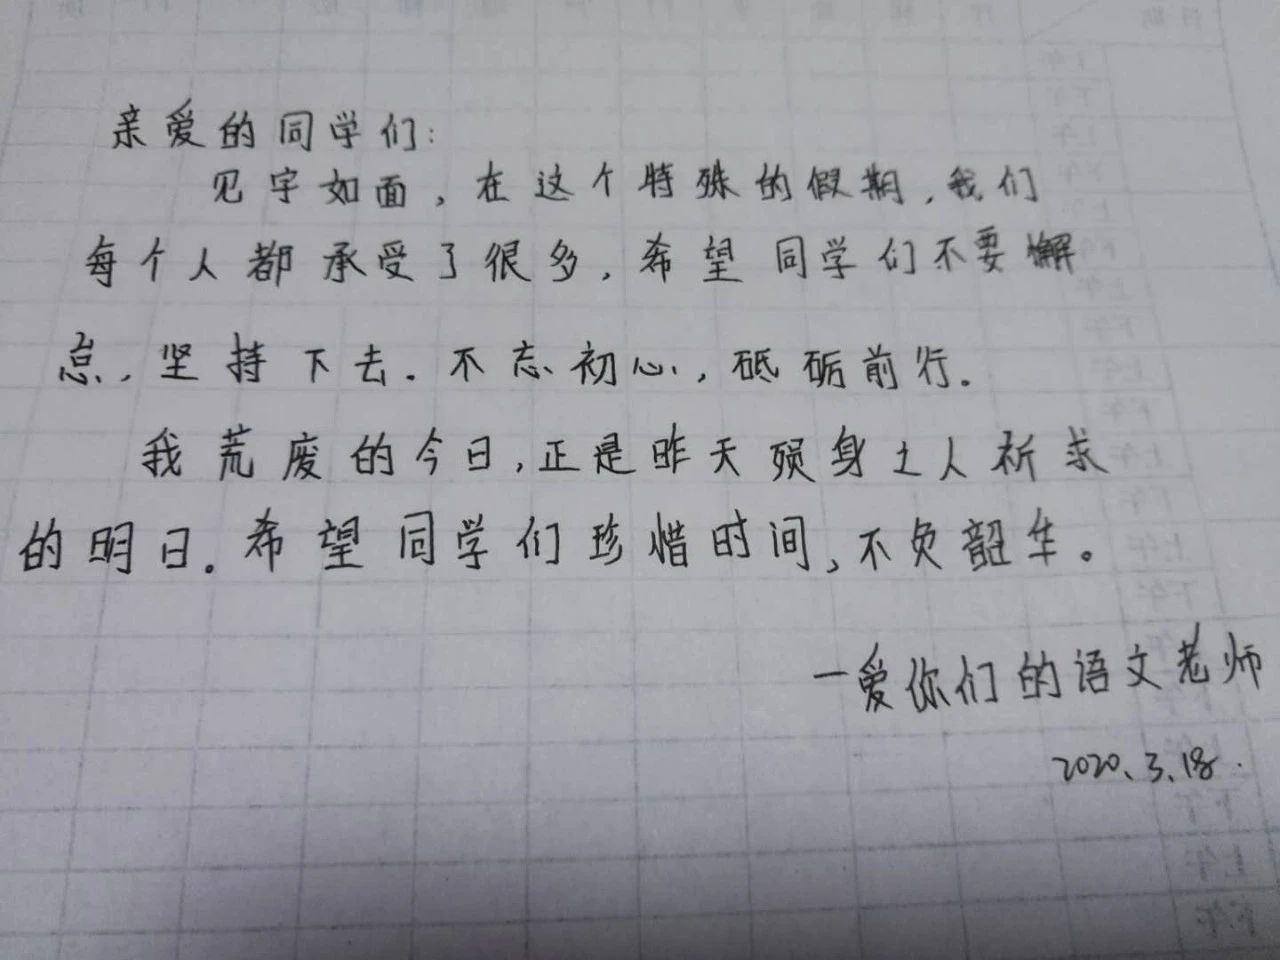 亲爱的同学们:
见字如面，在这个特殊的假期，我们
每个人都承受了很多，希望同学们不要懈
怠，坚持下去.不忘初心，砥砺前行.
我荒废的今日，正是昨天殒身之人祈求
的明日。希望同学们珍惜时间，不负韶华。
一爱你们的语文老师
2020.3.18.